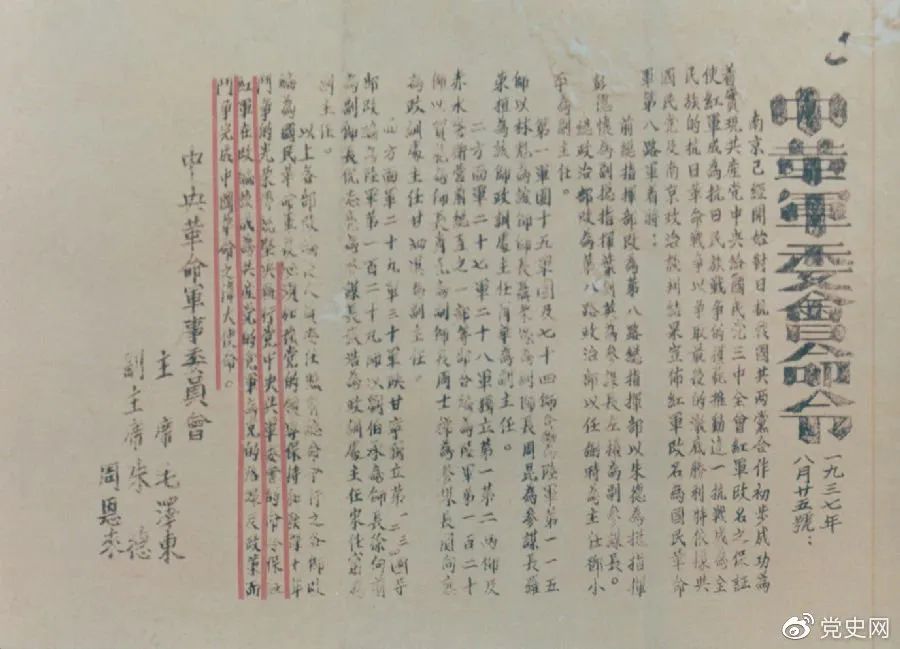 中革軍委會命令
一九三七年
八月廿五號：
南京已經開始對日抗戰國共兩黨合作初步成功為
着實現共産党中央給國民党三中全會紅軍改名之保証
使紅軍成為抗日民族戰爭的模範推動這一抗戰成為全
民族的抗日革命戰爭以爭取最後的澈底勝利特依據共
國民党及南京政治談判結果宣佈紅軍改名為國民革命
軍第八路軍着將：
前總指揮部改為第八路總指揮部以朱德為總指揮
彭德懷為副總指揮葉劍英為參謀長左權為副參謀長。
總政治部改為第八路政治部以任弼時為主任鄧小
平為副主任。
第一軍團十五軍團及七十四師合編為陸軍第一一五
師以林彪為該師師長聶榮臻為副師長周昆為參謀長羅
榮桓為該師政訓處主任蕭華為副主任。
二方面軍二十七軍二十八軍獨立第一第二兩師及
赤水警衛營前總直之一部等部合編為陸軍第一百二十
師以賀龍為師長蕭克為副師長周士第為參謀長關向應
為政訓處主任甘泗淇為副主任。
四方面軍二十九軍三十軍陝甘寧獨立第一二三四等
部改編為陸軍第一百二十九師以劉伯承為師長徐向前
為副師長倪志亮為參謀長張浩為政訓處主任宋任窮為
副主任。
以上各部改編後人員委任照前總命令行之各部改
編為國民革命軍後必須加強党的領導保持和發揮十年
鬥爭的光榮傳統堅決執行党中央與軍委會的命令保証
紅軍在改編後成為共産党的党軍為党的路線及政策而
鬥爭完成中國革命之偉大使命。
中央革命軍事委員會
主席毛澤東
副主席朱德
周恩來
党史网